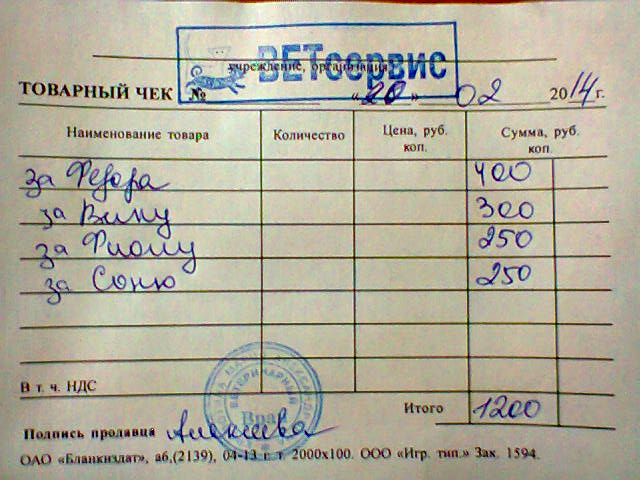 ВЕТсервис
учреждение, организация
ТОВАРНЫЙ ЧЕК № «20» 02 2014 г.
Наименование товара Количество Цена, руб. коп. Сумма, руб. коп.
за Федора 400
за Вину 300
за Фиону 250
за Соню 250
В т. ч. НДС
ВЕТЕРИНАРНЫЙ
Врач
Итого 1200
Подпись продавца Алексеева
ОАО «Бланкиздат», а6,(2139), 04-13 г. т. 2000х100. ООО «Игр. тип.» Зак. 1594.